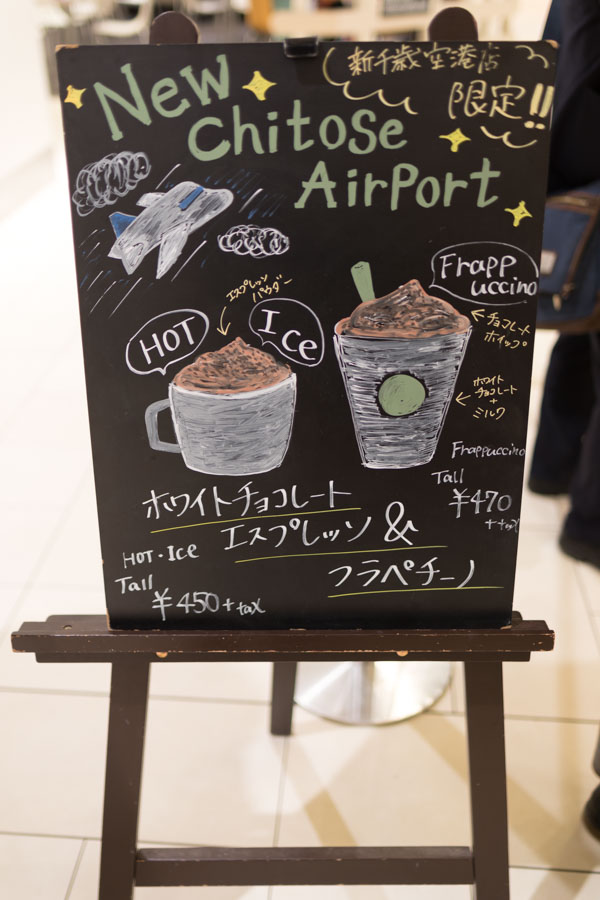 新千歳空港店
限定!!
New
Chitose
Airport
Frapp
uccino
エスプレッソ
パウダー
HOT
Ice
チョコレート
ホイップ
ホワイト
チョコレート
+
ミルク
Frappuccino
Tall
¥470
+tax
ホワイトチョコレート
エスプレッソ &
フラペチーノ
HOT・Ice
Tall
¥450+tax